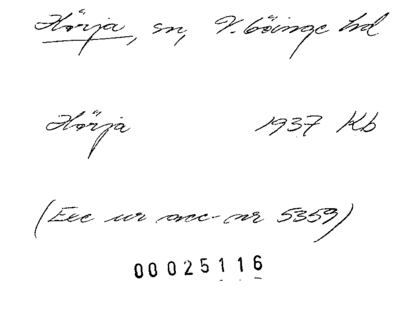 Hörja, sn, V. Göinge hd
Hörja 1937 Kb
(Exc ur acc-nr 5359)
00025116